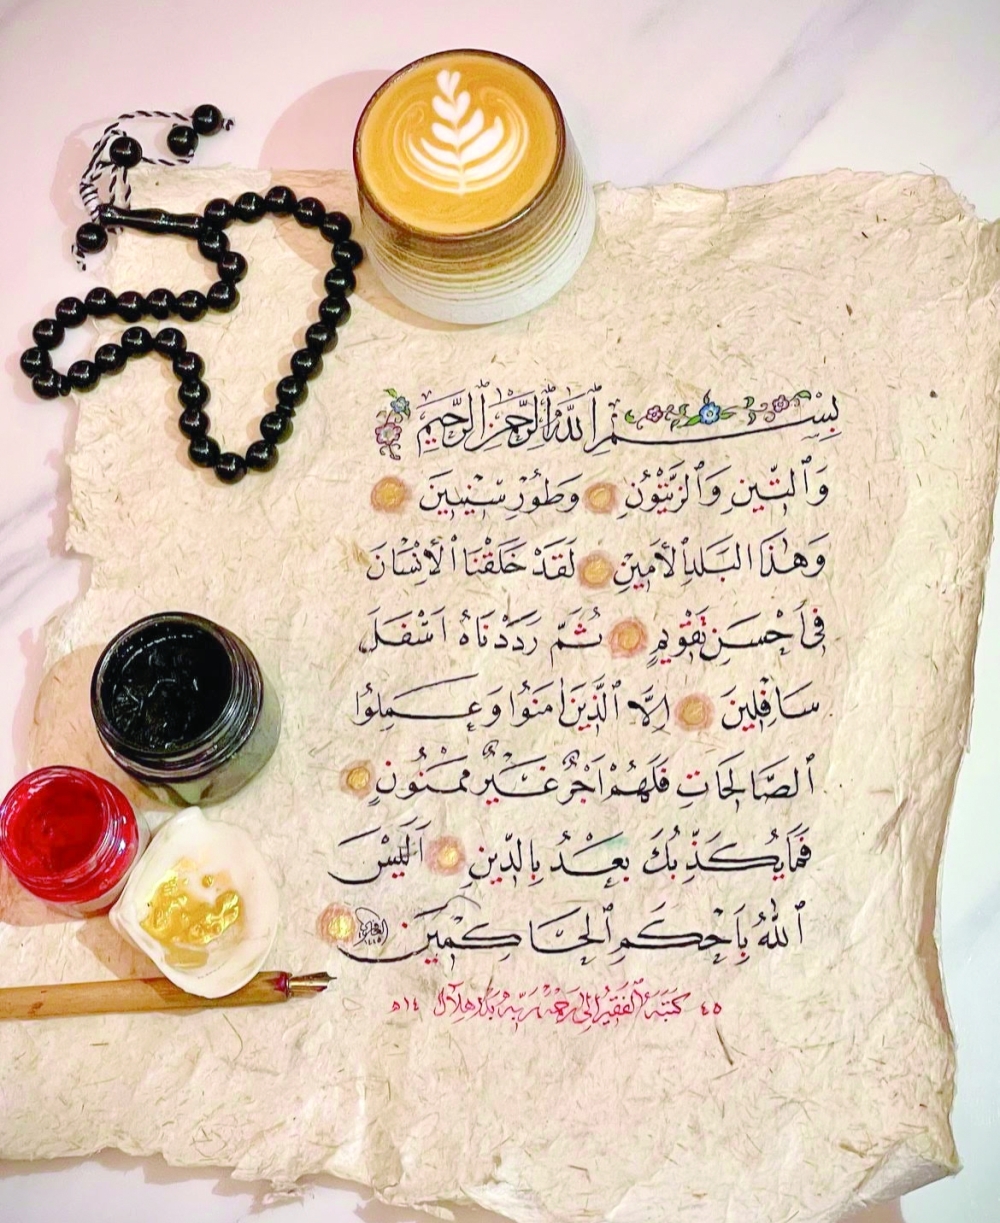 بِسْمِ ٱللَّهِ ٱلرَّحْمٰنِ ٱلرَّحِيمِ
وَٱلتِّينِ وَٱلزَّيْتُونِ وَطُورِ سِينِينَ
وَهٰذَا ٱلْبَلَدِ ٱلْأَمِينِ لَقَدْ خَلَقْنَا ٱلْأِنْسَانَ
فِى أَحْسَنِ تَقْوِيمٍ ثُمَّ رَدَدْنَاهُ أَسْفَلَ
سَافِلِينَ إِلَّا ٱلَّذِينَ اٰمَنُوا وَعَمِلُوا
ٱلصَّالِحَاتِ فَلَهُمْ أَجْرٌ غَيْرُ مَمْنُونٍ
فَمَا يُكَذِّبُكَ بَعْدُ بِالدِّينِ أَلَيْسَ
ٱللَّهُ بِأَحْكَمِ ٱلْحَاكِمِينَ
كَتَبَهُ ٱلْفَقِيرُ إِلَى رَحْمَةِ رَبِّهِ